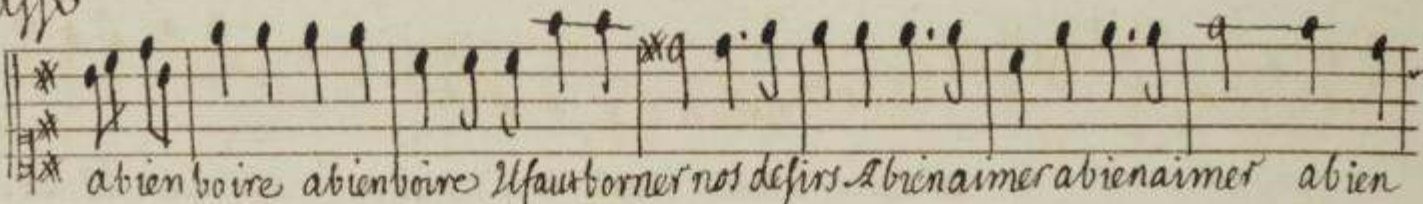 abien boire abienboire Il faut borner nos desirs A bien aimer abien aimer abien